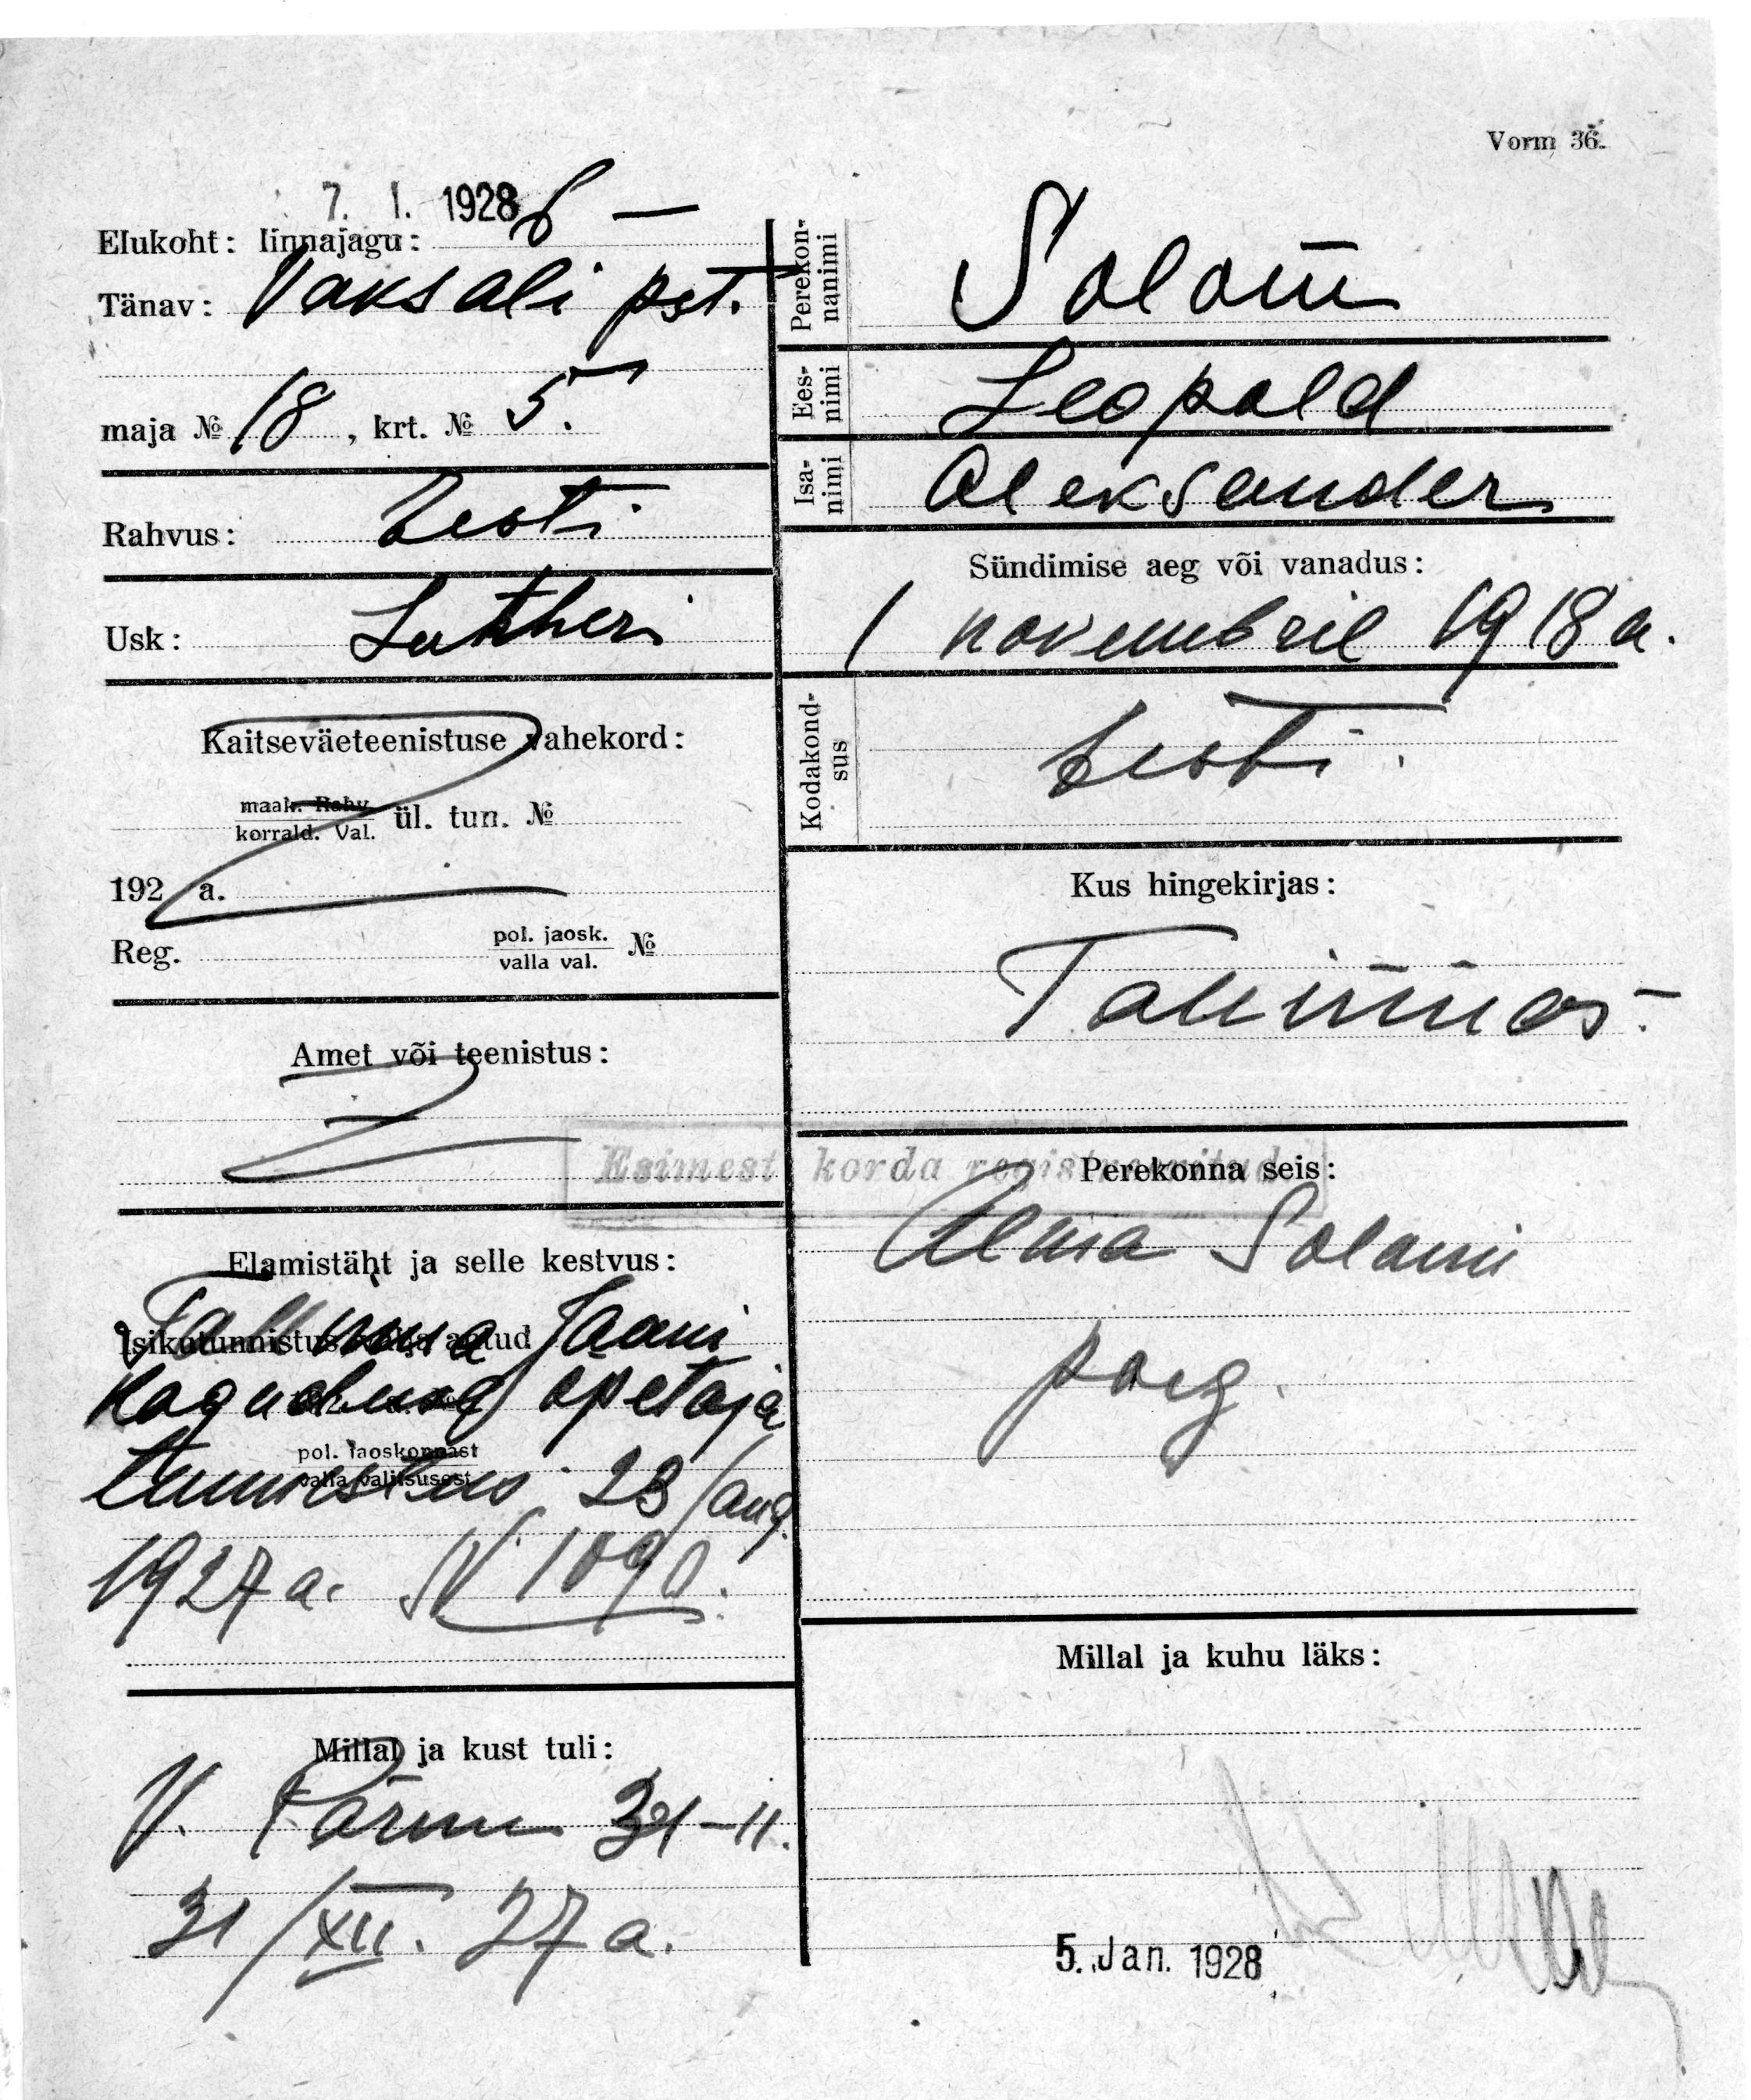 Vorm 36.
7. I. 1928
Elukoht: linnajagu: 6 —
Tänav: Vaksali pst.
maja № 18, krt. № 5.
Rahvus: Eesti
Usk: Lutheri
Kaitseväeteenistuse vahekord:
maak. Rahv.
korrald. Val. ül. tun. №
192 a.
Reg. pol. jaosk. №
valla val.
Amet või teenistus:
Elamistäht ja selle kestvus:
Isikutunnistus välja antud
Tallinna Jaani
Koguduse õpetaja
pol. jaoskonnast
valla valitsusest
tunnistus 23/aug.
1927 a. № 1090.
Millal ja kust tuli:
V. Pärnu 31-11.
31/XII. 27 a.
Perekon-
nanimi
Solom
Ees-
nimi
Leopold
Isa-
nimi
Aleksander
Sündimise aeg või vanadus:
1 novembril 1918 a.
Kodakond-
sus
Eesti.
Kus hingekirjas:
Tallinnas.
Esimest korda registreeritud
Perekonna seis:
poeg.
Millal ja kuhu läks:
5. Jan. 1928